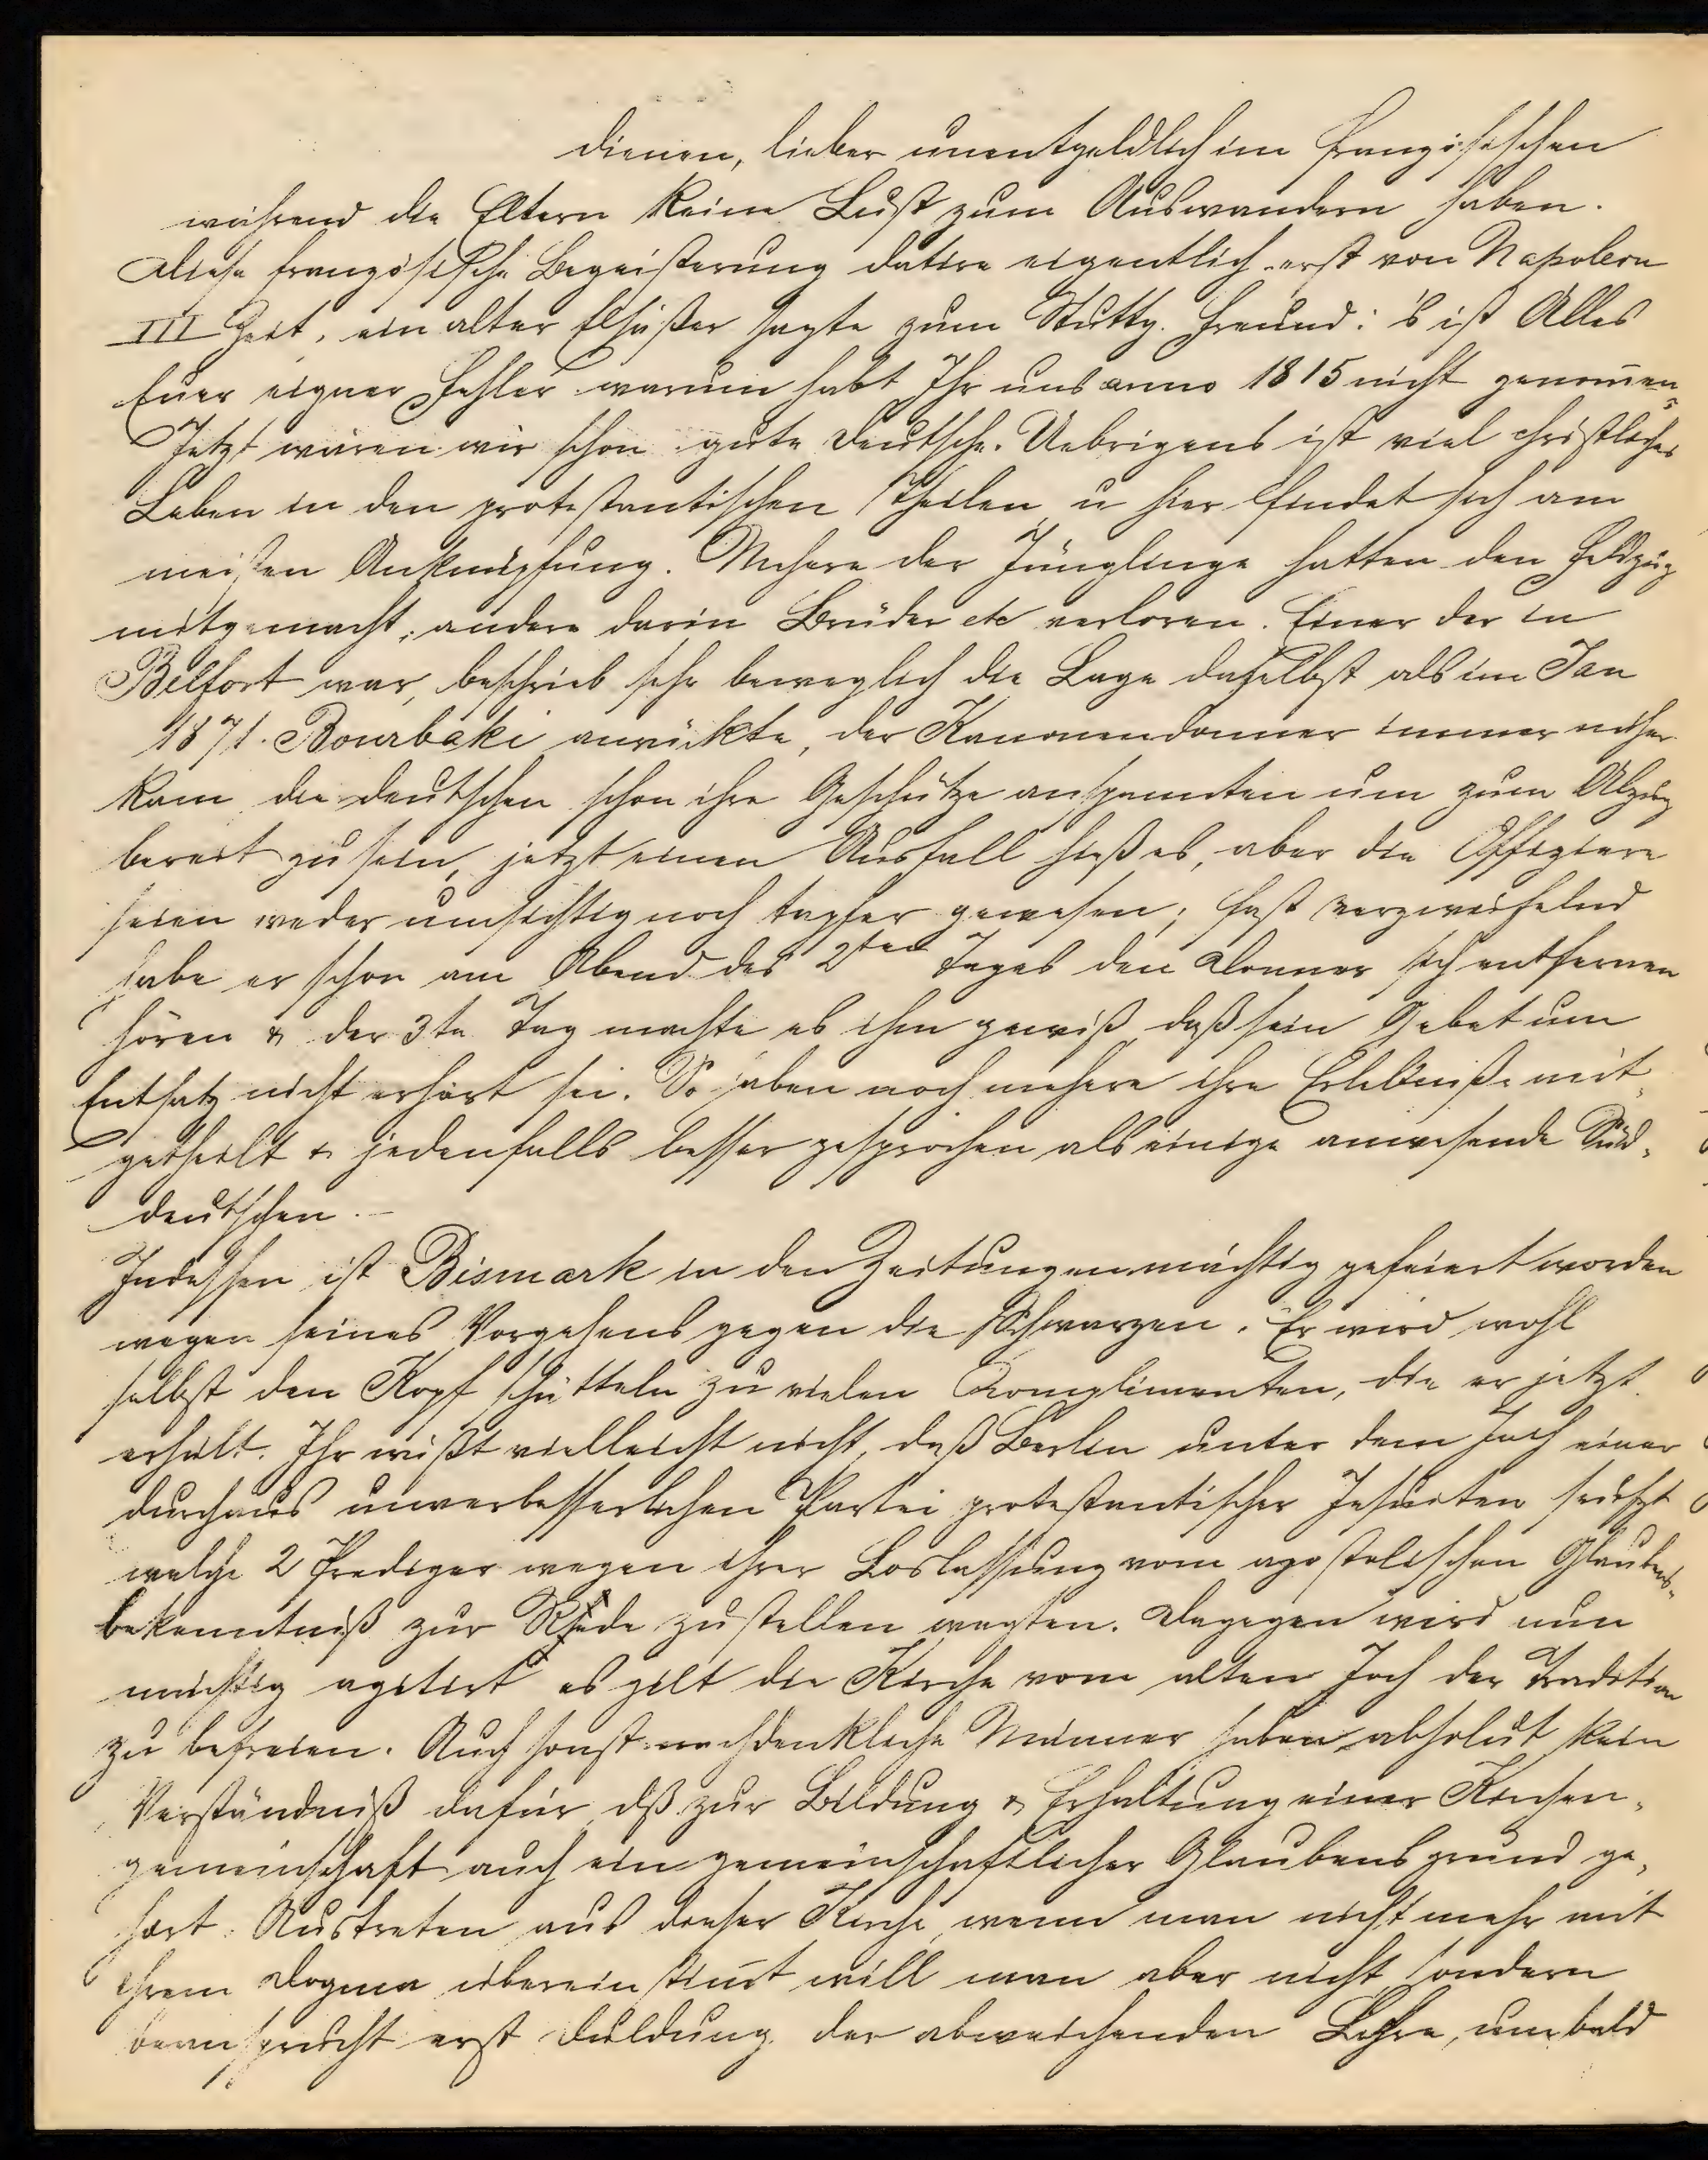 dienen, lieber unentgeldlich im französischen
während die Eltern keine Lust zum Auswandern haben.
Diese französische Begeisterung datire eigentlich erst von Napoleon
III Zeit, ein alter Elsäßer sagte zum Stuttg. Freund: 's ist Alles
Euer eigner Fehler warum habt Ihr uns anno 1815 nicht genom̅en,
Jetzt wären wir schon gute Deutsche. Uebrigens ist viel christliches
Leben in den protestantischen Theilen u hier findet sich am
meisten Anknüpfung. Mehere der Jünglinge hatten den Feldzug
mitgemacht, andere darin Brüder etc verloren. Einer der in
Belfort war, beschrieb sehr beweglich die Lage daselbst als im Jan
1871. Bourbaki anrückte, der Kanonendonner immer näher
kam die Deutschen schon ihre Geschütze anspannten um zum Abzug
bereit zu sein, jetzt einen Ausfall hieß es, aber die Offiziere
seien weder umsichtig noch tapfer gewesen; fast verzweifelnd
habe er schon am Abend des 2ten Tages den Donner sich entfernen
hören & der 3te Tag machte es ihm gewiß daß sein Gebet um
Entsatz nicht erhört sei. So haben noch mehere ihre Erlebniße mit-
getheilt & jedenfalls besser gesprochen als einige anwesende Süd-
deutschen. –
Indessen ist Bismark in den Zeitungen mächtig gefeiert worden
wegen seines Vorgehens gegen die Schwarzen. Er wird wohl
selbst den Kopf schütteln zu vielen Complimenten, die er jetzt
erhält. Ihr wißt vielleicht nicht, daß Berlin unter dem Joch einer
durchaus unverbesserlichen Partei protestantischer Jesuiten seufzt
welche 2 Prediger wegen ihrer Loslassung vom apostolischen Glaubens-
bekenntniß zur Rede zu stellen wagten. Dagegen wird nun
mächtig agitirt es gilt die Kirche vom alten Joch der Tradition
zu befreien. Auch sonst nachdenkliche Männer haben absolut kein
Verständniß dafür, dß zur Bildung & Erhaltung einer Kirchen-
gemeinschaft auch ein gemeinschaftlicher Glaubensgrund ge-
hört. Austreten aus dieser Kirche, wenn man nicht mehr mit
ihrem Dogma übereinstim̅t will man aber nicht sondern
beansprucht erst Duldung der abweichenden Lehre, um bald